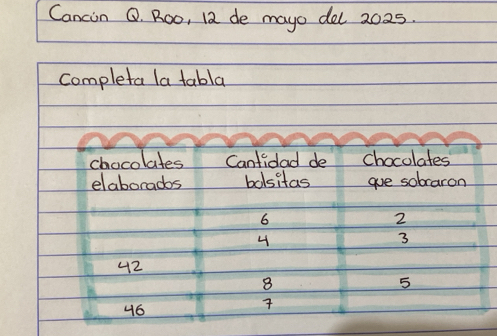 Cancún Q. Roo, 12 de mayo del 2025.
Completa la tabla
chocolates elaborados Cantidad de bolsitas Chocolates que sobraron
6 2
4 3
42
8 5
46 7